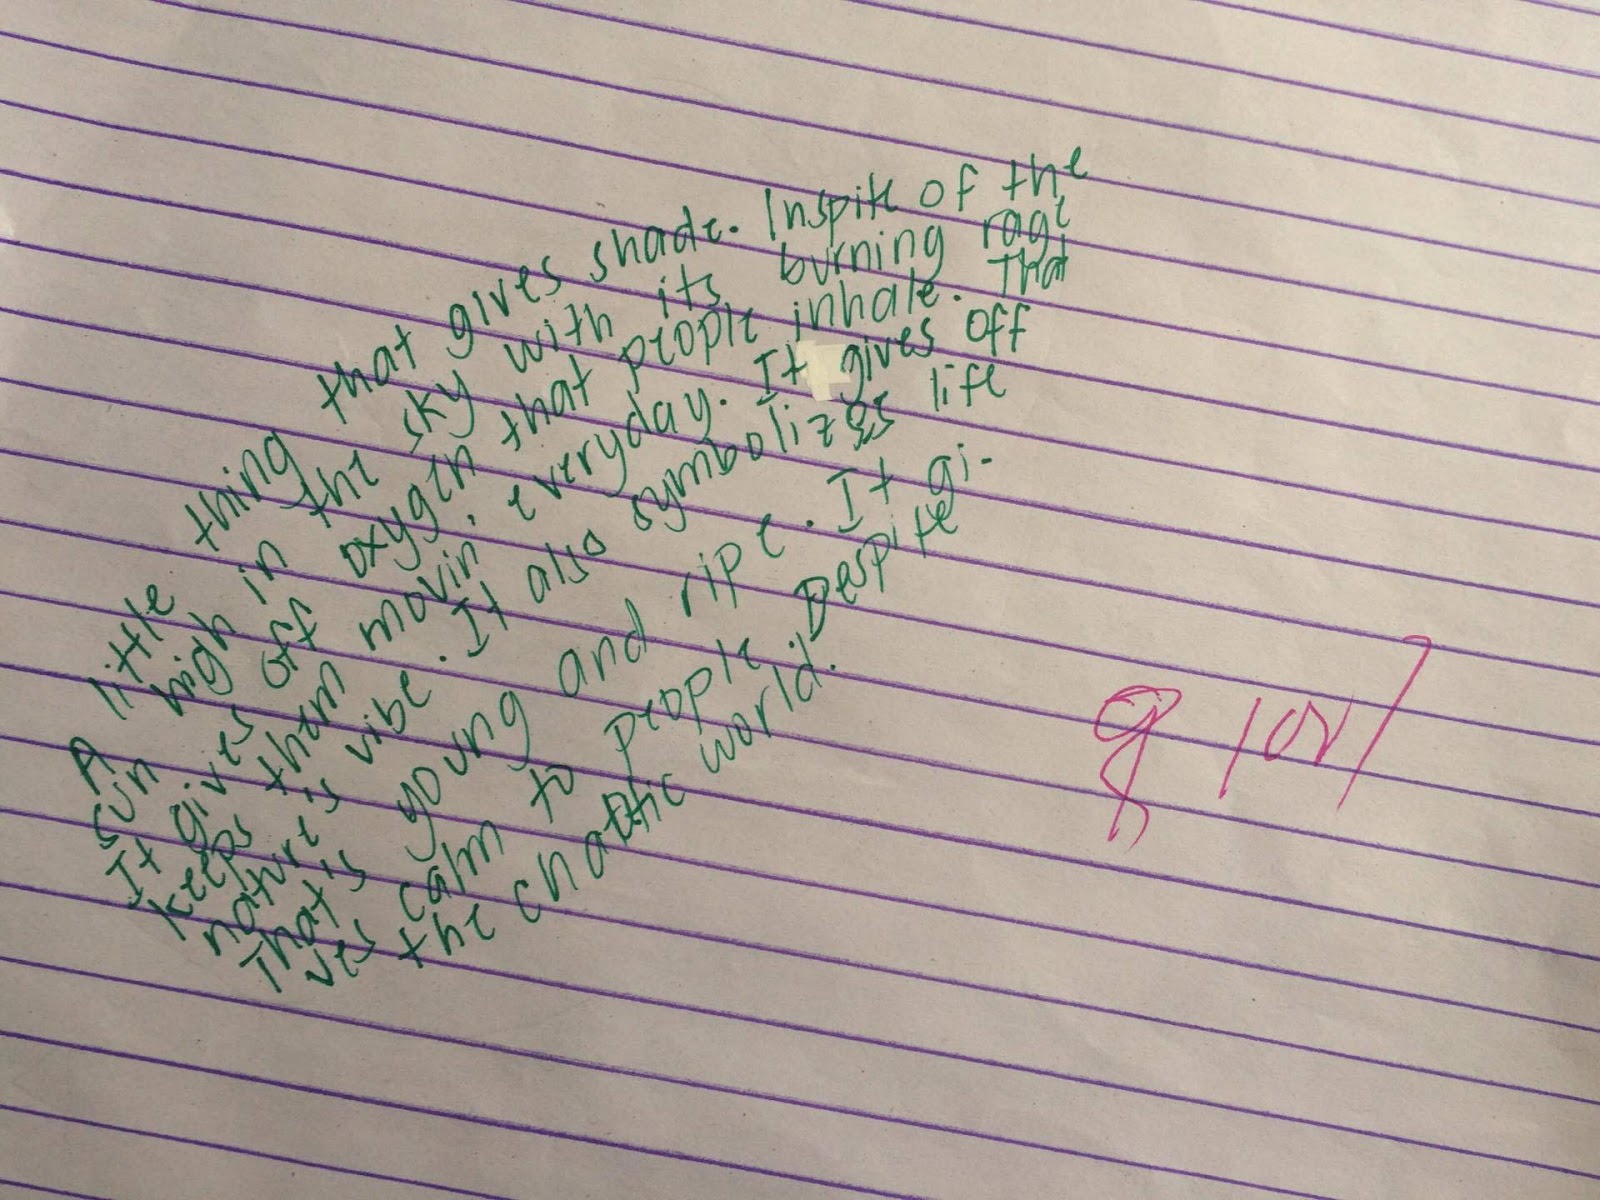 A little thing that gives shade. Inspite of the
sun high in the sky with its burning rage
It gives off oxygen that people inhale. That
keeps them movin' everyday. It gives off
nature's vibe. It also symbolizes life
That is young and ripe. It gi-
ves calm to people. Despite
the chaotic world.